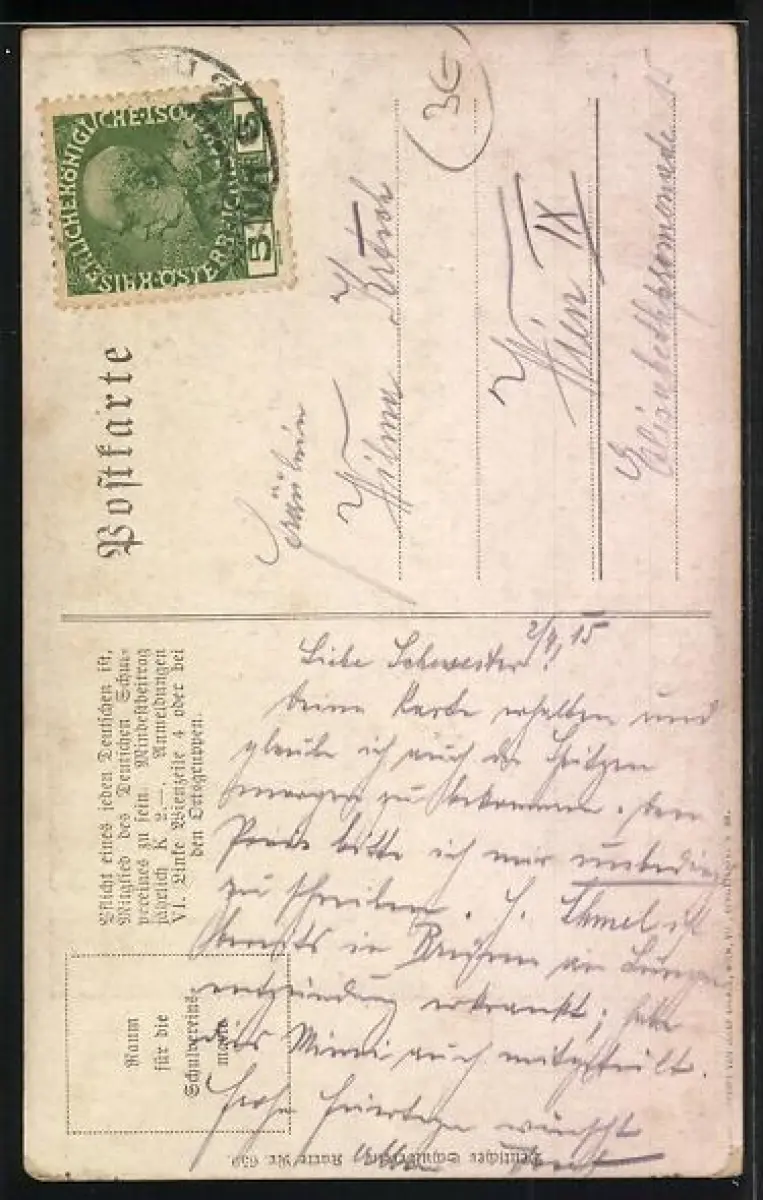 Postkarte
KAISERLICHE KÖNIGLICHE ÖSTERREICHISCHE
5 5
3€
Fräulein
Wilma
Wien IX
Elisabethpromenade 15
Pflicht eines jeden Deutschen ist,
Mitglied des Deutschen Schul-
vereines zu sein. Mindestbeitrag
jährlich K 2.—. Anmeldungen
VI. Linke Wienzeile 4 oder bei
den Ortsgruppen.
Raum
für die
Schulvereins-
marke
15
Liebe Schwester!
deine Karte erhalten und
glaube ich auch die Spitzen
morgen zu bekommen. Den
Preis bitte ich mir unbedingt
zu schreiben. ist
bereits in an Lungen
entzündung erkrankt; habe
dies Minni auch mitgeteilt.
Frohe Feiertage wünscht
Deutscher Schulverein Karte Nr. 659.